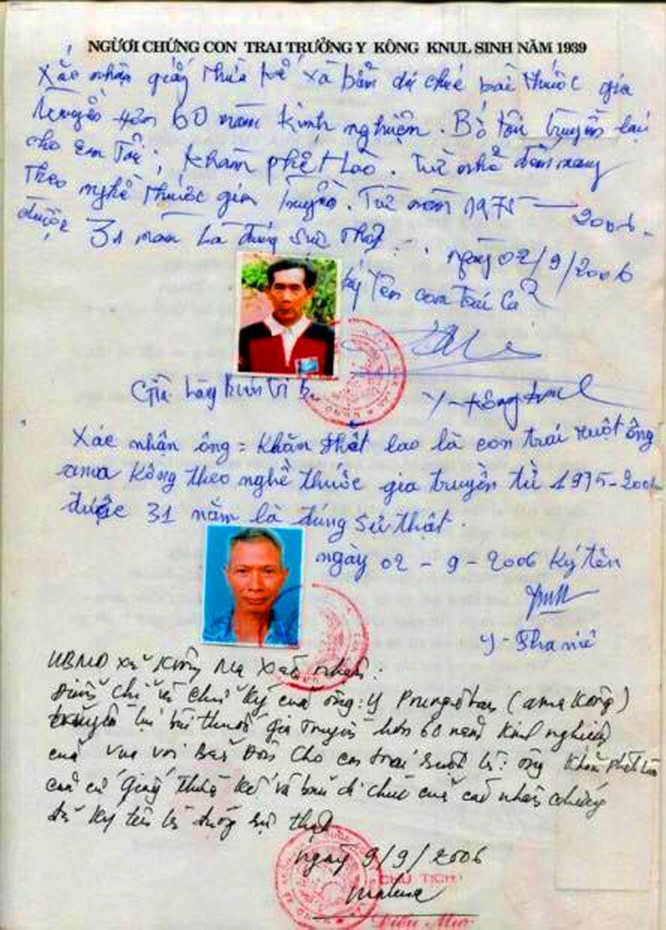 NGƯỜI CHỨNG CON TRAI TRƯỞNG Y KÔNG KNUL SINH NĂM 1939
Xác nhận giấy thừa kế và bản di chúc bài thuốc gia
truyền hơn 60 năm kinh nghiệm. Bố tôi truyền lại
cho em Tôi; Khăm phết Lào. Từ nhỏ đến nay
Theo nghề thuốc gia truyền. Từ năm 1975 — 2006.
được 31 năm là đúng sự thật.
ngày 02/9/2006
ký Tên con trai cả
Y-Kông knul
Già làng
Xác nhận ông = Khăn thất lao là con trai ruột ông
ama Kông theo nghề thuốc gia truyền từ 1975-2006
được 31 năm là đúng sử thật.
ngày 02 - 9 - 2006 Ký tên
Y-
UBND xã Krông Na Xác nhận:
chữ ký của ông: Y Prung (ama Kông)
truyền lại bài thuốc gia truyền hơn 60 năm kinh nghiệm
của vua voi Bản Đôn cho con trai ruột là: ông Khăm phết Lào
căn cứ giấy thừa kế và bản di chúc của các nhân chứng
đã ký tên là đúng sự thật
ngày 9/9/2006
CHỦ TỊCH